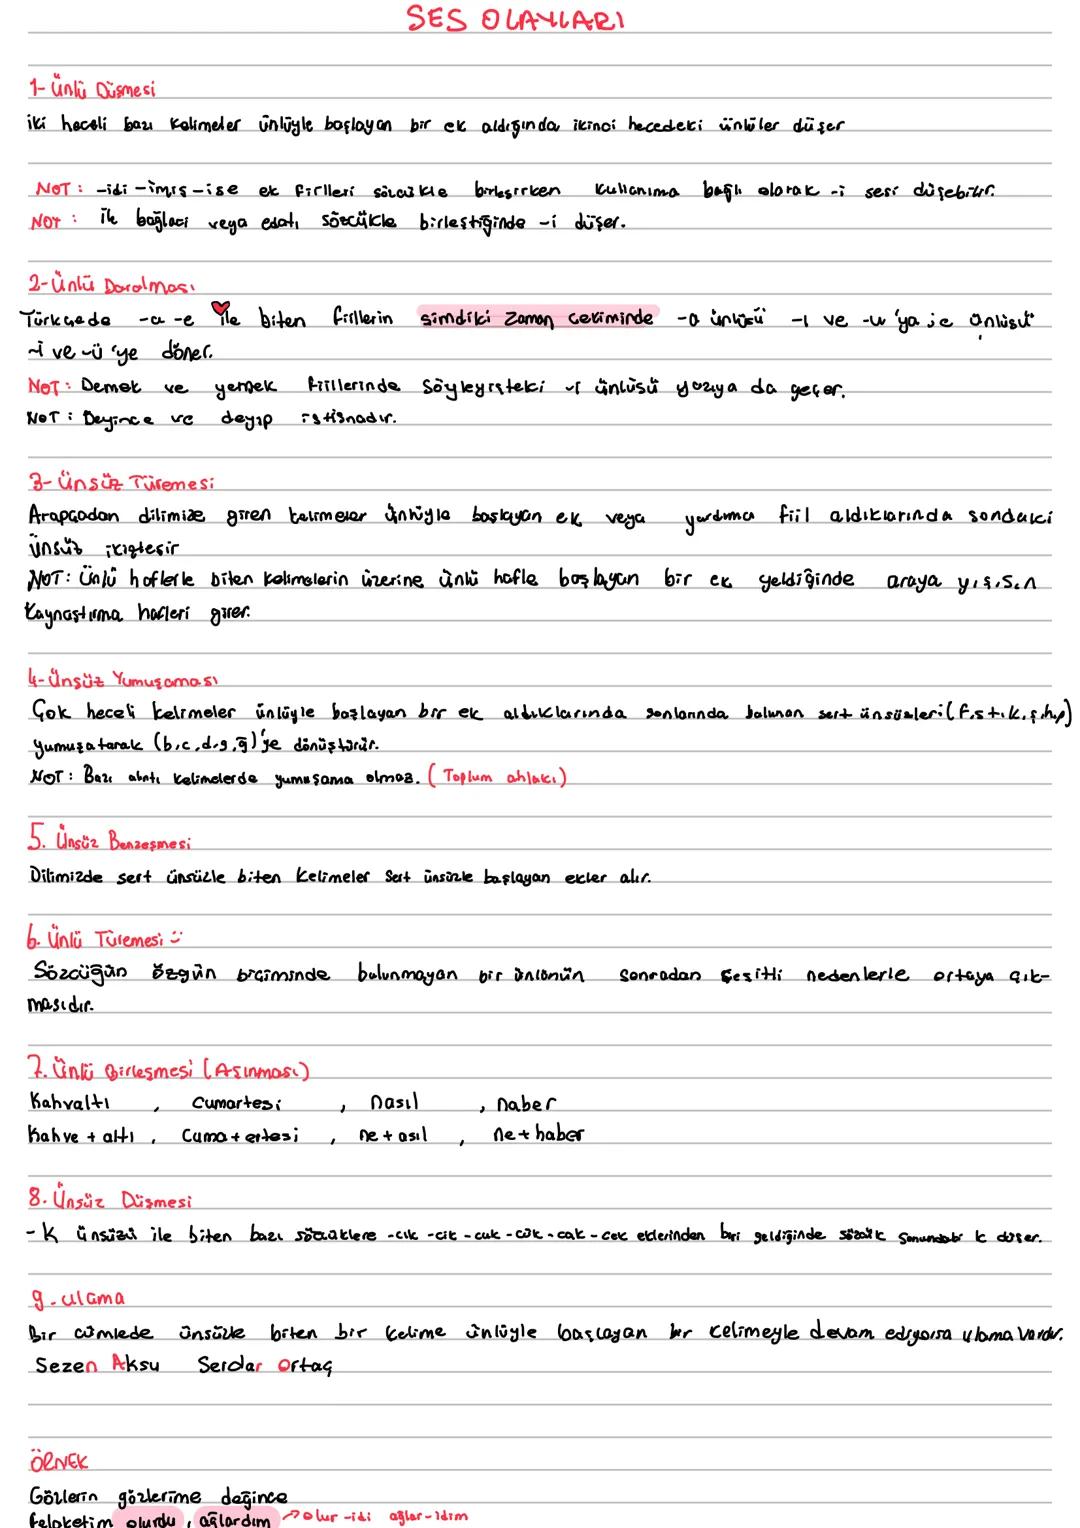 SES OLAYLARI
1- Ünlü Düşmesi
iki heceli bazı kelimeler ünlüyle başlayan bir ek aldığında ikinci hecedeki ünlüler düşer
NOT: -idi -imiş -ise ek fiilleri sözcükle birleşirken kullanıma bağlı olarak -i sesi düşebilir.
NOT: ile bağlacı veya edatı sözcükle birleştiğinde -i düşer.
2- Ünlü Daralması
Türkçede -a -e ile biten fiillerin şimdiki zaman çekiminde -a ünlüsü -ı ve -u 'ya ;e ünlüsü
-i ve -ü 'ye döner.
NOT: Demek ve yemek fiillerinde söyleyişteki -i ünlüsü yazıya da geçer.
NOT: Deyince ve deyip istisnadır.
3- Ünsüz Türemesi
Arapçadan dilimize giren kelimeler ünlüyle başlayan ek veya yardımcı fiil aldıklarında sondaki
ünsüz ikizleşir
NOT: Ünlü haflerle biten kelimelerin üzerine ünlü hafle başlayan bir ek geldiğinde araya y,ş,s,n
kaynaştırma hafleri girer.
4- Ünsüz Yumuşaması
Çok heceli kelimeler ünlüyle başlayan bir ek aldıklarında sonlarında bulunan sert ünsüzleri (f,s,t,k,ç,ş,h,p)
yumuşatarak (b,c,d,g,ğ)'ye dönüştürür.
NOT: Bazı alıntı kelimelerde yumuşama olmaz. (Toplum ahlakı)
5. Ünsüz Benzeşmesi
Dilimizde sert ünsüzle biten kelimeler sert ünsüzle başlayan ekler alır.
6. Ünlü Türemesi :)
Sözcüğün özgün biçiminde bulunmayan bir ünlünün sonradan çeşitli nedenlerle ortaya çık-
masıdır.
7. Ünlü Birleşmesi (Aşınması)
Kahvaltı , Cumartesi , nasıl , naber
Kahve + altı , Cuma + ertesi , ne + asıl , ne + haber
8. Ünsüz Düşmesi
-K ünsüzü ile biten bazı sözcüklere -cık -cik -cuk -cük -cak -cek eklerinden biri geldiğinde sözcük sonundaki k düşer.
9. ulama
Bir cümlede ünsüzle biten bir kelime ünlüyle başlayan bir kelimeyle devam ediyorsa ulama vardır.
Sezen Aksu Serdar Ortaç
ÖRNEK
Gözlerin gözlerime değince
felaketim olurdu , ağlardım → olur -idi ağlar-ıdım